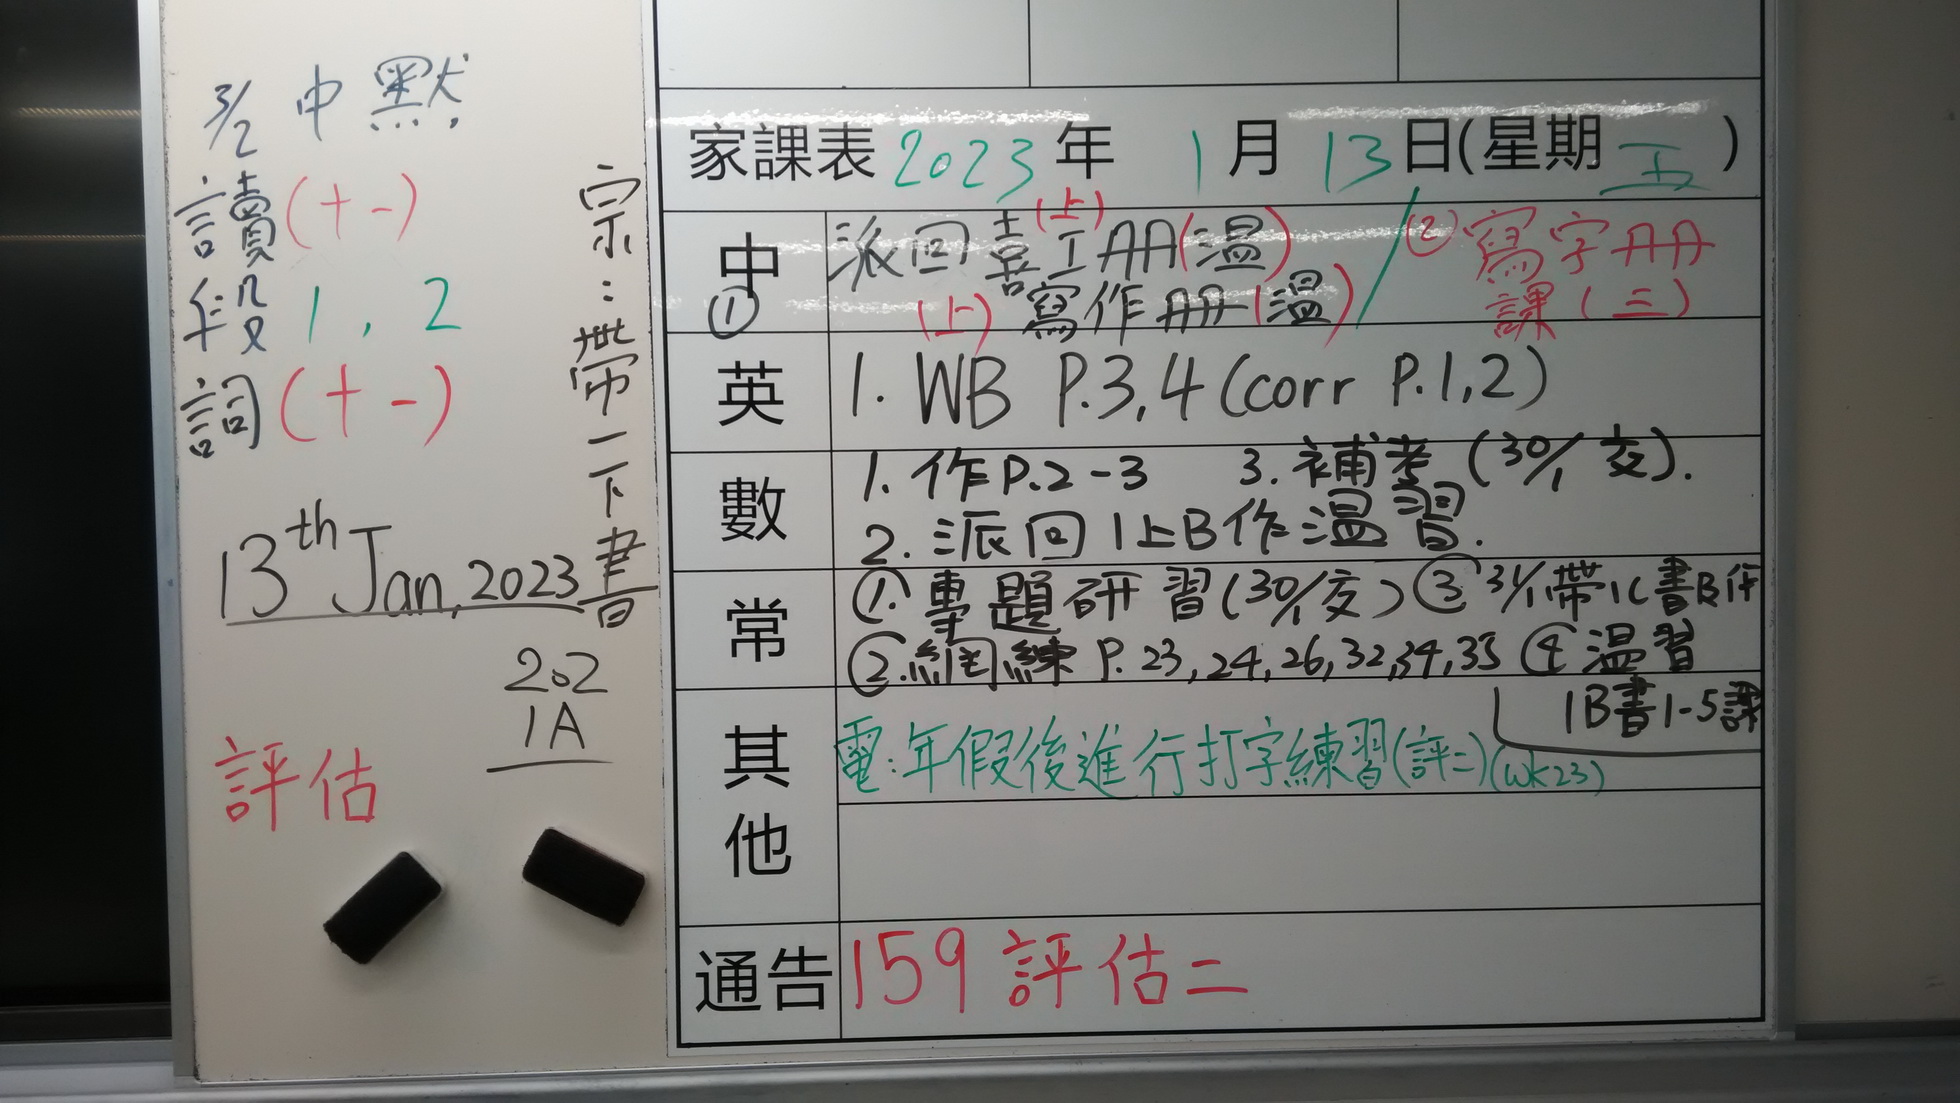 3/2 中默
讀(十一)
段 1, 2
詞(十一)
宗:帶一下書
13th Jan, 2023
202
1A
評估
家課表 2023 年 1 月 13 日(星期 五 )
中 ①
派回喜工册(上)(溫)
(上)寫作册(溫)
② 寫字册
課(三)
英
1. WB P.3,4 (corr P.1,2)
數
1. 作P.2-3 3. 補考 (30/1 交).
2. 派回1上B作溫習.
常
①. 專題研習(30/1交) ③ 31/1帶1C書B作
②. 網練 P. 23, 24, 26, 32, 34, 35 ④ 溫習
1B書1-5課
其他
電:年假後進行打字練習(評二)(wk23)
通告
159 評估二